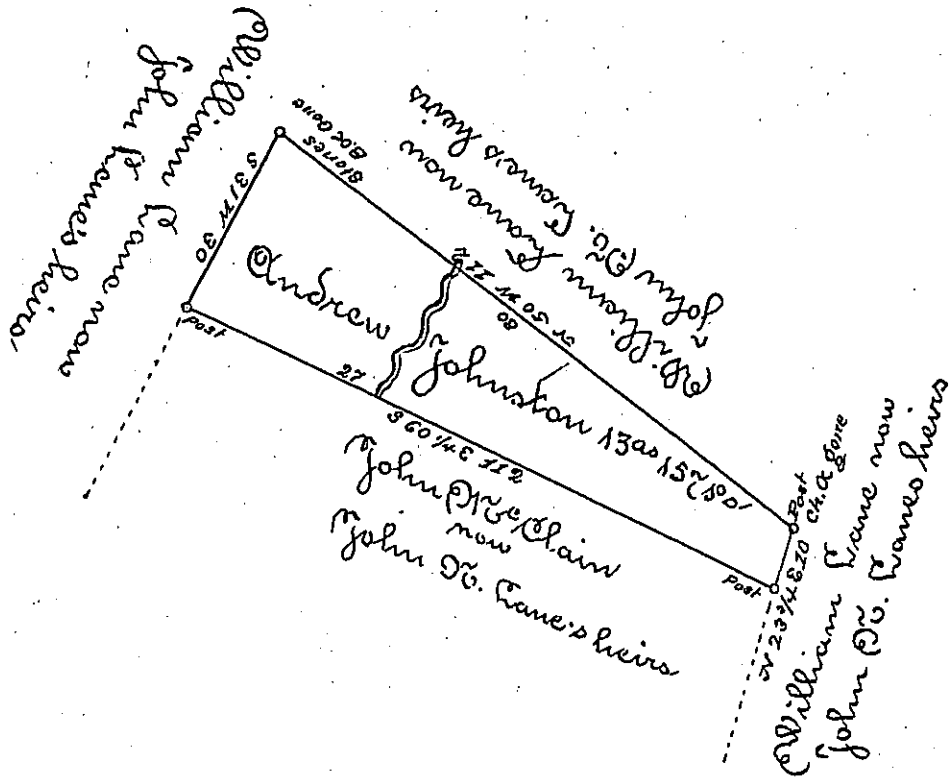 William Lane now
John Lane's heirs
S 31 W 30
Post
B.O. Gone
Stones
William Lane now
John M. Lane's heirs
N 50 W 112
80
Andrew
Johnston 13 as 157 ps.
27
S 60 1/4 E 112
John McClain
now
John M. Lane's heirs
Post
Post
Ch. O gone
N 23 3/4 E 10
William Lane now
John M. Lanes heirs